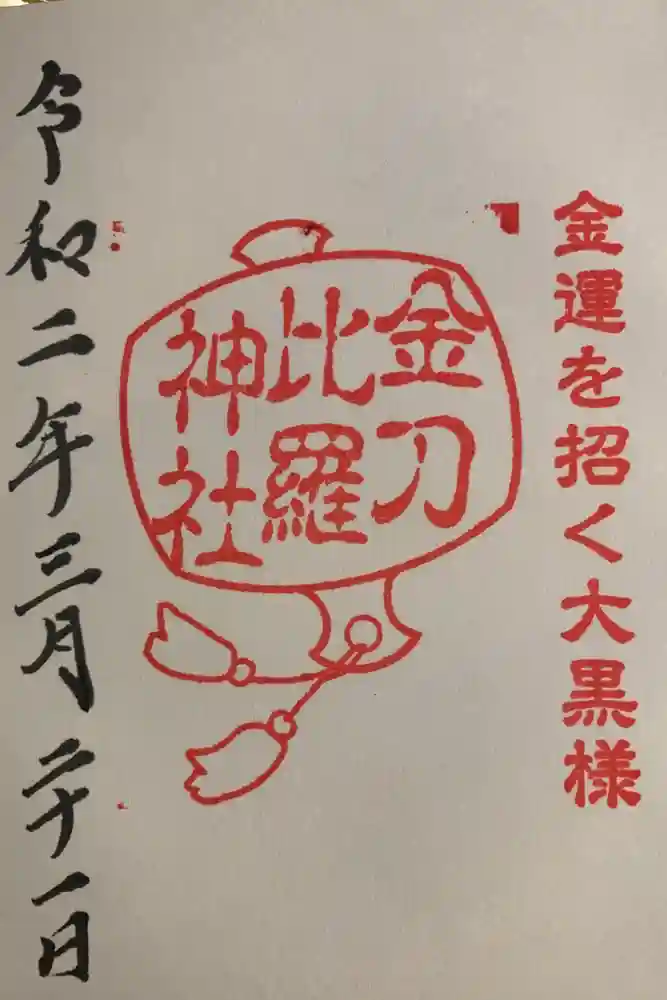 金運を招く大黒様
金刀
比羅
神社
令和二年三月二十一日